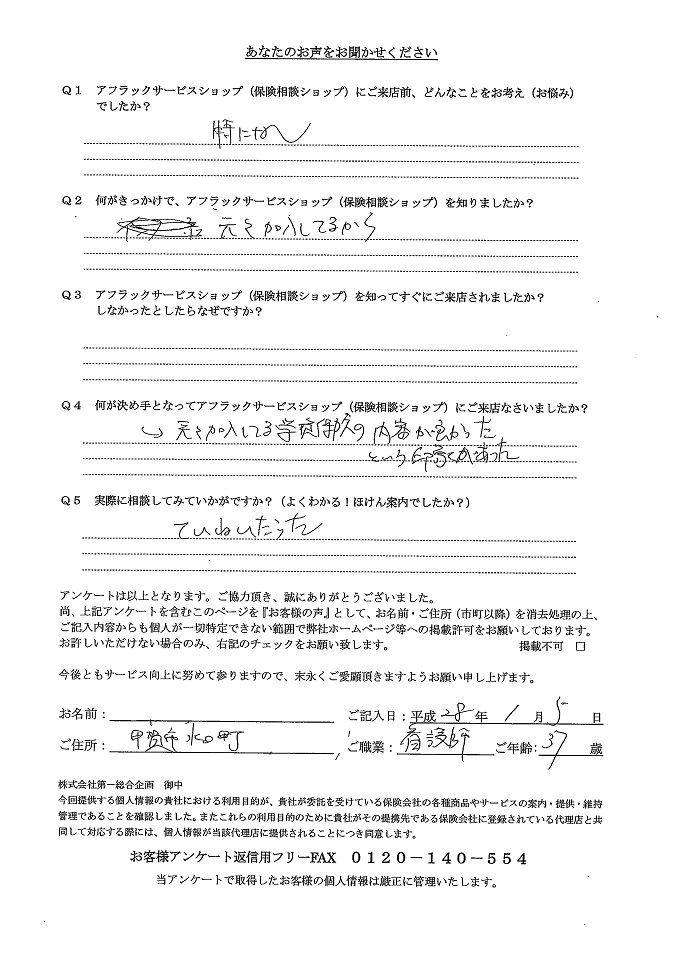 あなたのお声をお聞かせください
Q1 アフラックサービスショップ（保険相談ショップ）にご来店前、どんなことをお考え（お悩み）
でしたか？
特になし
Q2 何がきっかけで、アフラックサービスショップ（保険相談ショップ）を知りましたか？
元々加入してるから
Q3 アフラックサービスショップ（保険相談ショップ）を知ってすぐにご来店されましたか？
しなかったとしたらなぜですか？
Q4 何が決め手となってアフラックサービスショップ（保険相談ショップ）にご来店なさいましたか？
元々加入してる の内容が良かった
という印象があった
Q5 実際に相談してみていかがですか？（よくわかる！ほけん案内でしたか？）
ていねいだった
アンケートは以上となります。ご協力頂き、誠にありがとうございました。
尚、上記アンケートを含むこのページを『お客様の声』として、お名前・ご住所（市町以降）を消去処理の上、
ご記入内容からも個人が一切特定できない範囲で弊社ホームページ等への掲載許可をお願いしております。
お許しいただけない場合のみ、右記のチェックをお願い致します。 掲載不可 □
今後ともサービス向上に努めて参りますので、末永くご愛顧頂きますようお願い申し上げます。
お名前： ご記入日：平成 28 年 1 月 5 日
ご住所： 甲賀市水口町 ご職業： 看護師 ご年齢： 37 歳
株式会社第一総合企画 御中
今回提供する個人情報の貴社における利用目的が、貴社が委託を受けている保険会社の各種商品やサービスの案内・提供・維持
管理であることを確認しました。またこれらの利用目的のために貴社がその提携先である保険会社に登録されている代理店と共
同して対応する際には、個人情報が当該代理店に提供されることにつき同意します。
お客様アンケート返信用フリーFAX 0120－140－554
当アンケートで取得したお客様の個人情報は厳正に管理いたします。